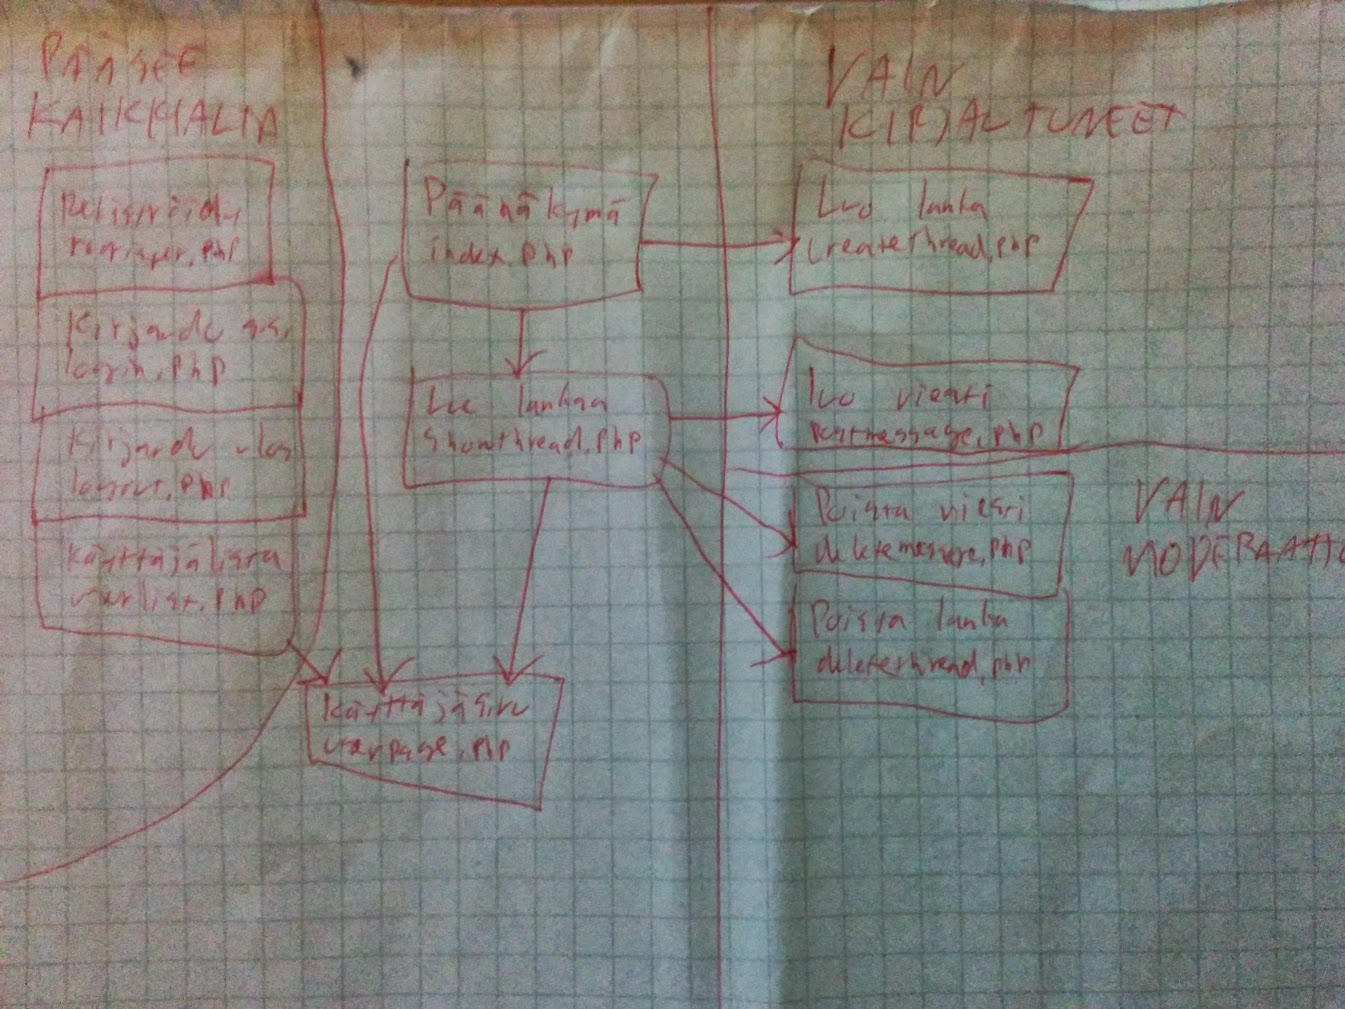 PÄÄSEE
KAIKKIALTA
Rekisteröidy
register.php
Kirjaudu sis.
login.php
Kirjaudu ulos
logout.php
Käyttäjälista
userlist.php
Päänäkymä
index.php
Lue lankaa
showthread.php
Käyttäjäsivu
userpage.php
VAIN
KIRJAUTUNEET
Luo lanka
createthread.php
luo viesti
postmessage.php
Poista viesti
deletemessage.php
Poista lanka
deletethread.php
VAIN
MODERAATTO